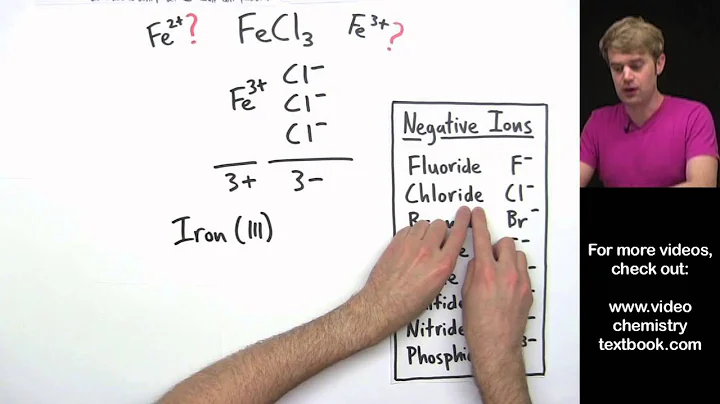 Fe2+? FeCl3 Fe3+?
Cl−
Fe3+ Cl−
Cl−
3+ 3−
Iron (III)
Negative Ions
Fluoride F−
Chloride Cl−
Br−
Nitride 3−
For more videos,
check out:
www.video
chemistry
textbook.com